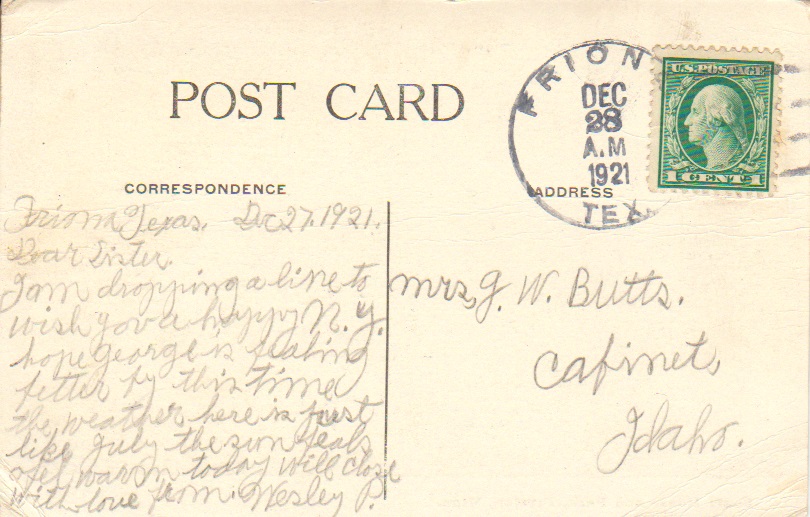 POST CARD
CORRESPONDENCE
ADDRESS
FRION
DEC
28
A.M
1921
TEX.
U.S. POSTAGE
1 CENT 1
Friona Texas. Dec 27. 1921.
Dear Sister.
I am dropping a line to
wish you a happy N. Y.
hope george is fealing
better by this time
the weather here is just
like July the sun feals
warm today will close
with love from Wesley P.
Mrs. G. W. Butts.
Cabinet,
Idaho.